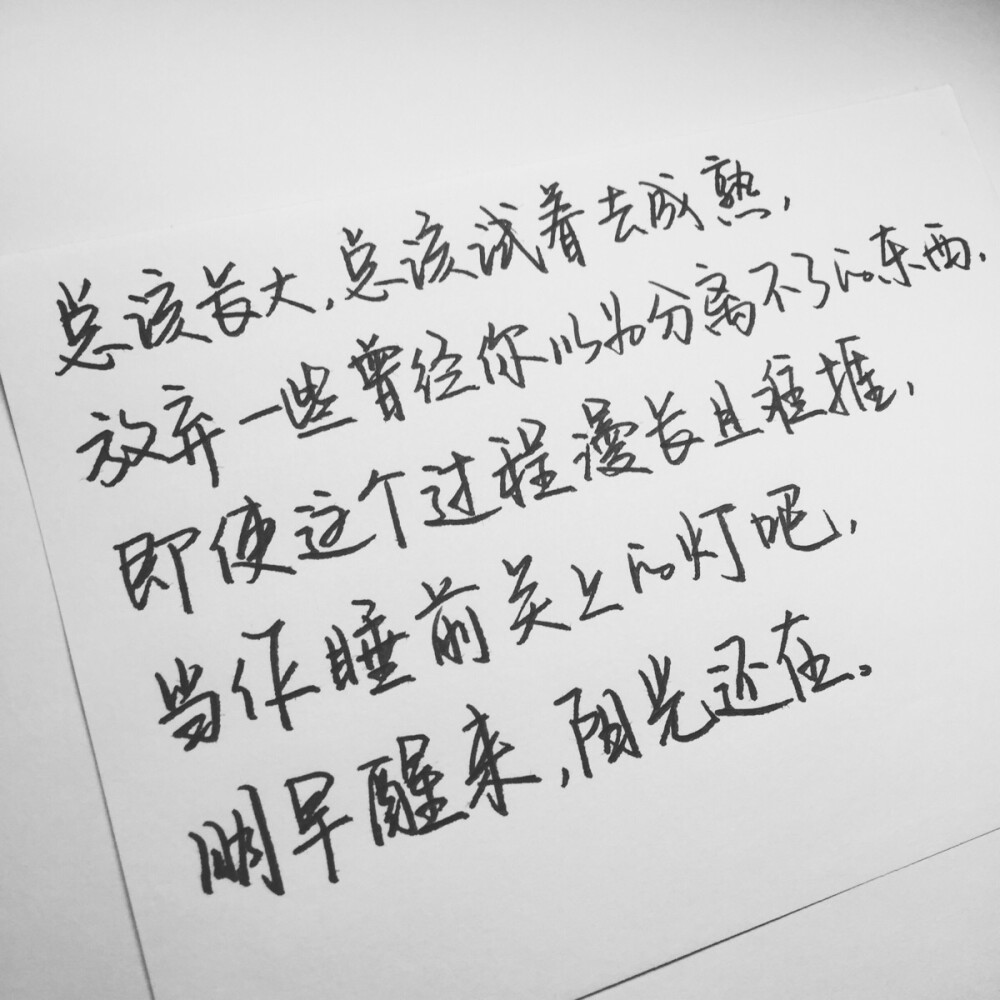 总该长大,总该试着去成熟,
放弃一些曾经你以为分离不了的东西,
即使这个过程漫长且难捱,
当作睡前关上的灯吧,
明早醒来,阳光还在。